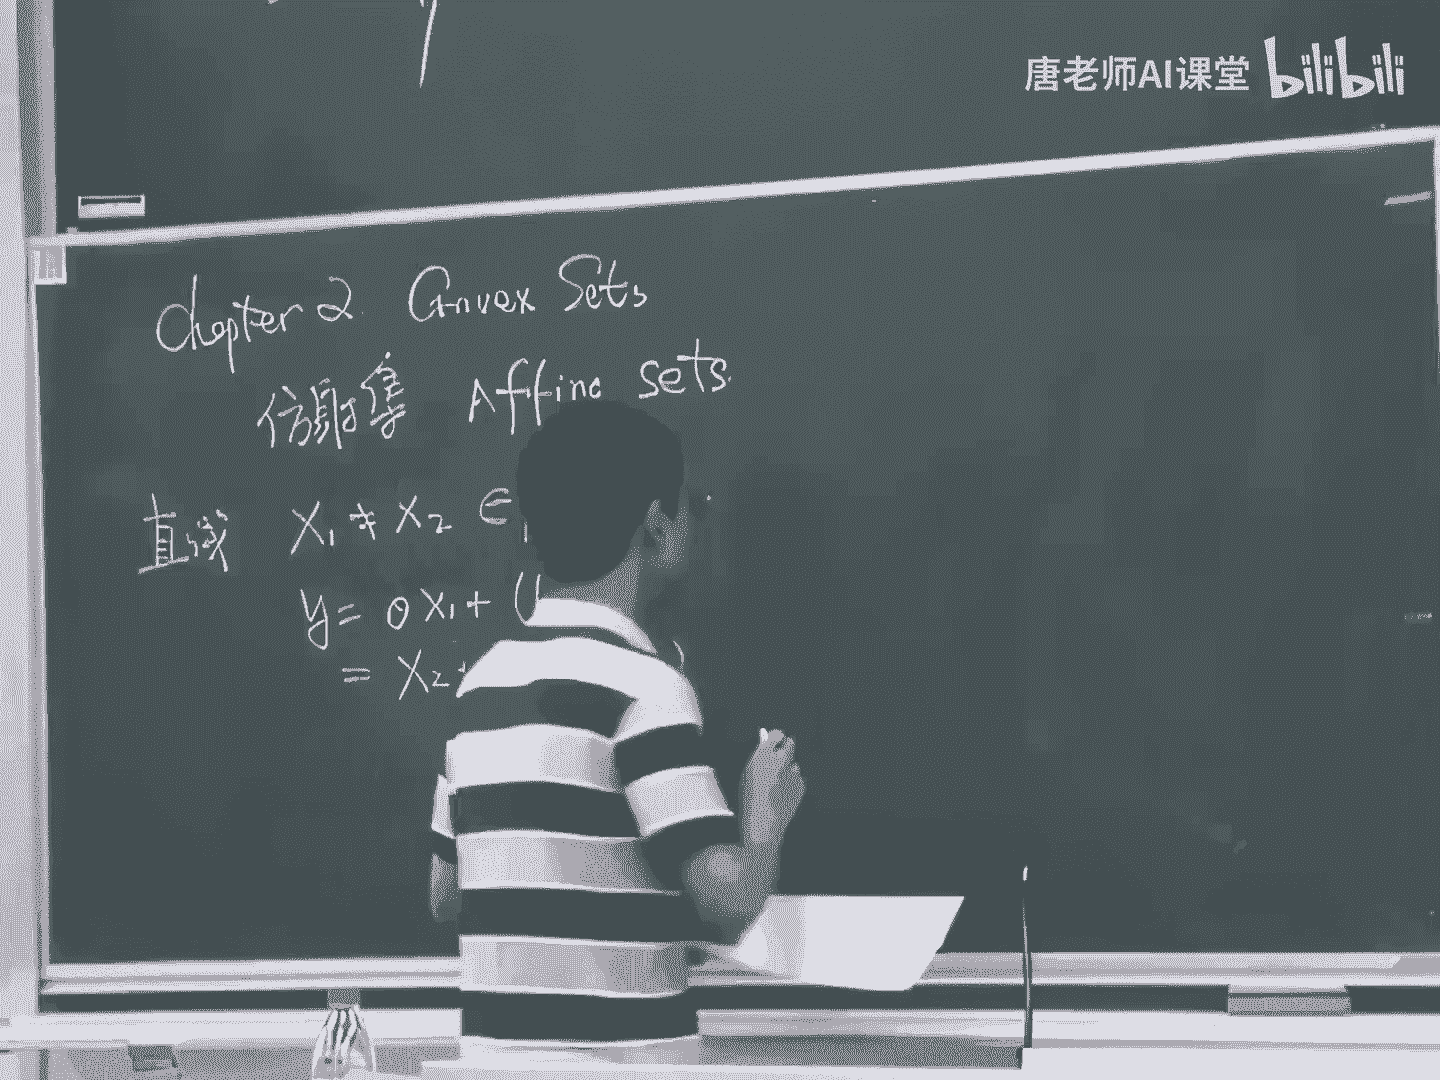 唐老师AI课堂 bilibili
Chapter 2. Convex Sets
仿射集 Affine sets.
直线 X₁ ≠ X₂ ∈
y = θ X₁ + (
= X₂ +